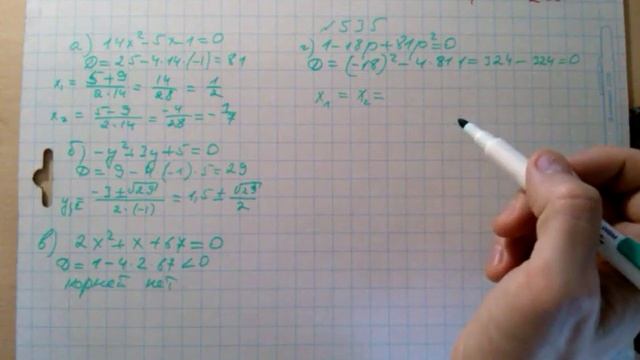 № 535
а) 14x² - 5x - 1 = 0
D = 25 - 4·14·(-1) = 81
x₁ = 5+9 / 2·14 = 14/28 = 1/2
x₂ = 5-9 / 2·14 = -4/28 = -1/7
б) -y² + 3y + 5 = 0
D = 9 - 4·(-1)·5 = 29
-3 ± √29 / 2·(-1) = 1,5 ± √29/2
в) 2x² + x + 67 = 0
D = 1 - 4·2·67 < 0
корней нет
г) 1 - 18p + 81p² = 0
D = (-18)² - 4·81·1 = 324 - 324 = 0
x₁ = x₂ =